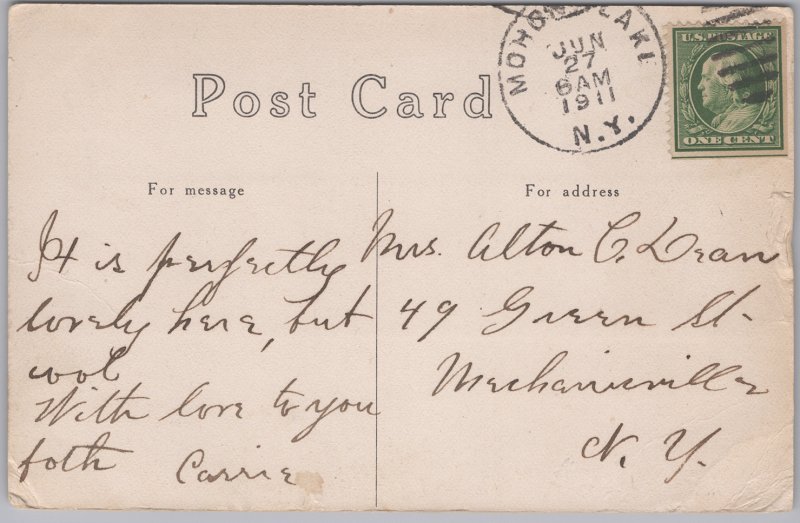 Post Card
MOHONK LAKE
JUN
27
6 AM
1911
N.Y.
U.S. POSTAGE
ONE CENT
For message
For address
It is perfectly
lovely here, but
cool
With love to you
both Carrie
Mrs. Alton C. Dean
49 Green St.
Mechanicville
N. Y.